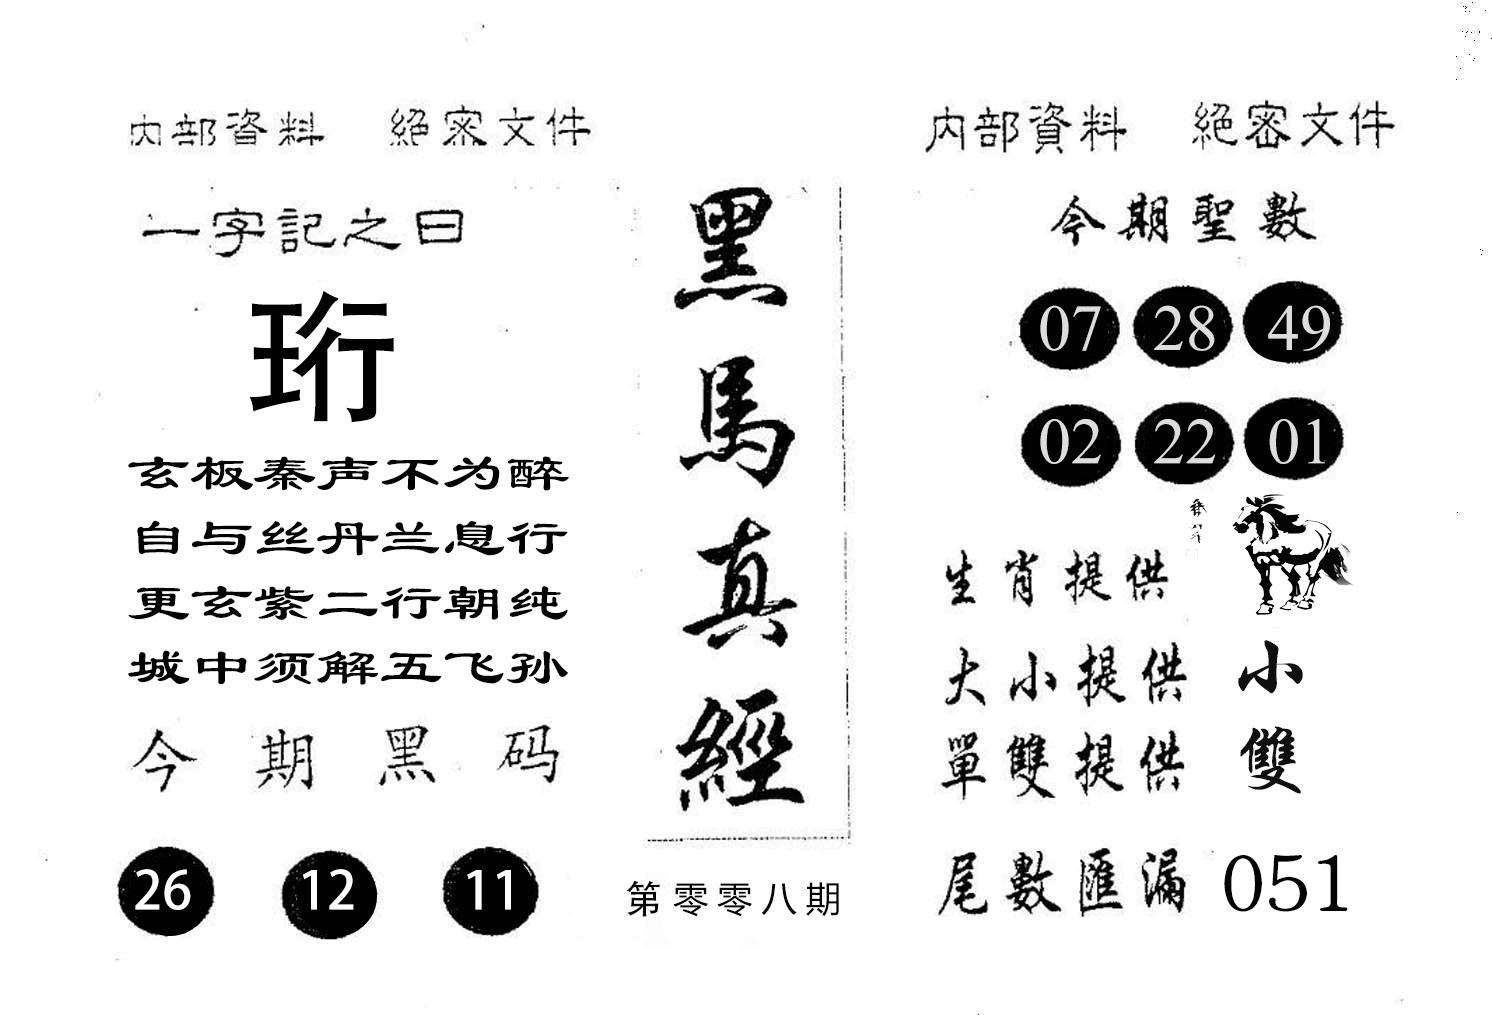 内部資料 絕密文件
一字記之曰
珩
玄板秦声不为醉
自与丝丹兰息行
更玄紫二行朝纯
城中须解五飞孙
今期黑码
26 12 11
黑馬真經
第零零八期
内部資料 絕密文件
今期聖數
07 28 49
02 22 01
生肖提供
大小提供 小
單雙提供 雙
尾數匯漏 051